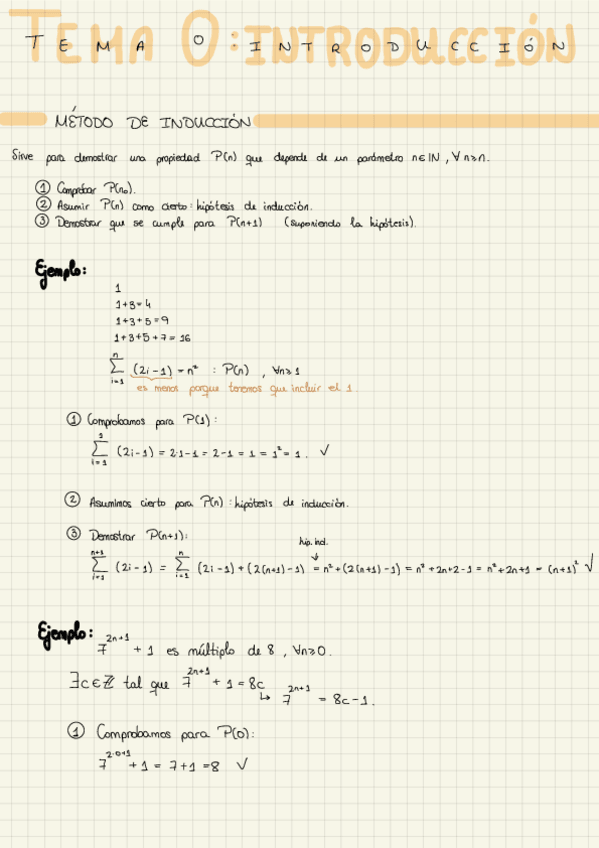 TEMA 0: INTRODUCCIÓN
MÉTODO DE INDUCCIÓN
Sirve para demostrar una propiedad P(n) que depende de un parámetro n∈ℕ, ∀n≥n.
① Comprobar P(n₀).
② Asumir P(n) como cierto: hipótesis de inducción.
③ Demostrar que se cumple para P(n+1) (suponiendo la hipótesis).
Ejemplo:
1
1+3=4
1+3+5=9
1+3+5+7=16
∑_{i=1}^{n} (2i-1) = n² : P(n), ∀n≥1
es menos porque tenemos que incluir el 1
① Comprobamos para P(1):
∑_{i=1}^{1} (2i-1) = 2·1-1 = 2-1 = 1 = 1² = 1. √
② Asumimos cierto para P(n): hipótesis de inducción.
③ Demostrar P(n+1):
hip. ind.
∑_{i=1}^{n+1} (2i-1) = ∑_{i=1}^{n} (2i-1) + (2(n+1)-1) = n² + (2(n+1)-1) = n² + 2n+2-1 = n²+2n+1 = (n+1)² √
Ejemplo:
7^{2n+1} + 1 es múltiplo de 8, ∀n≥0.
∃c∈ℤ tal que 7^{2n+1} + 1 = 8c
↳ 7^{2n+1} = 8c-1.
① Comprobamos para P(0):
7^{2·0+1} + 1 = 7+1 = 8 √